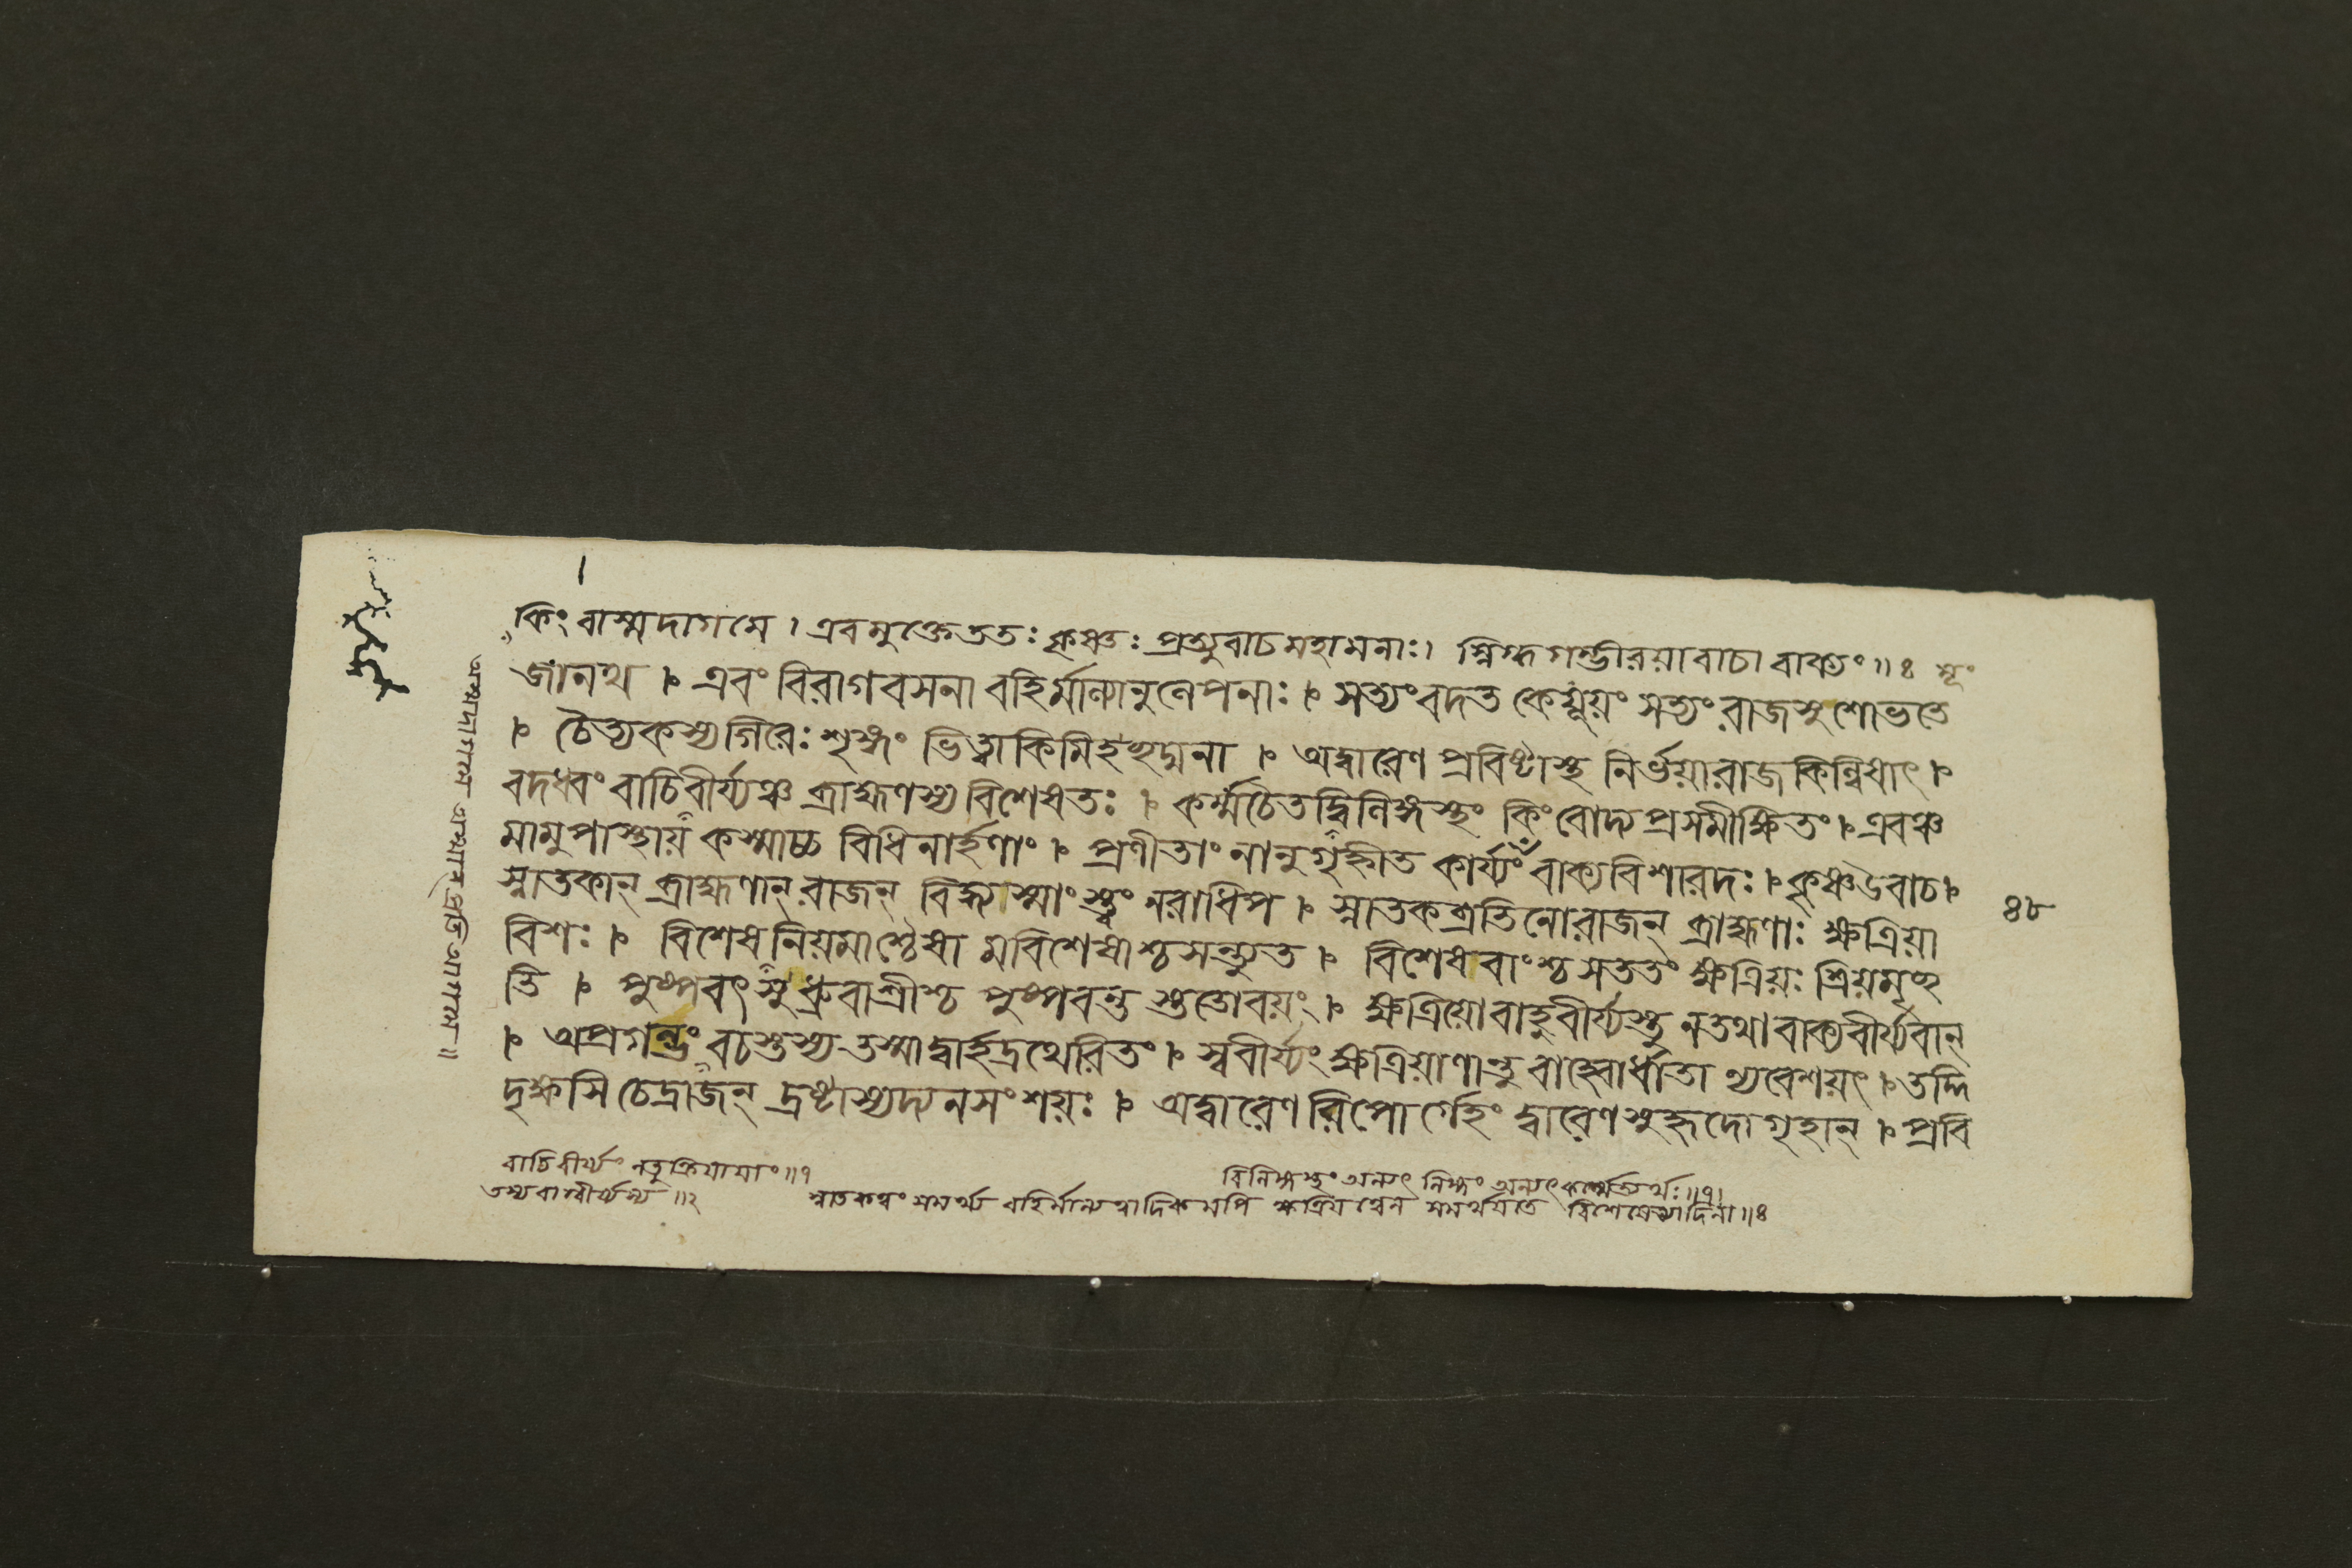 কিং বাস্মদাগমে । এবমুক্তেততঃ কৃষ্ণঃ প্রত্যুবাচমহামনাঃ। স্নিগ্ধগম্ভীরয়াবাচা বাক্যং ॥ ৪
জানথ । এবং বিরাগবসনা বহির্মাল্যানুলেপনাঃ । সত্যংবদত কেযূয়ং সত্যং রাজসুশোভতে
। চৈত্যকস্যগিরেঃ শৃঙ্গং ভিত্ত্বাকিমিহছদ্মনা । অদ্বারেণ প্রবিষ্টাস্থ নির্ভয়ারাজকিল্বিষাৎ ।
বদধ্বং বাচিবীর্য্যঞ্চ ব্রাহ্মণস্যবিশেষতঃ । কর্ম্মচৈতদ্বিলিঙ্গস্থং কিংবোদ্যপ্রসমীক্ষিতং । এবঞ্চ
মামুপাস্থায় কস্মাচ্চ বিধিনার্হণাং । প্রণীতাং নানুগৃহ্ণীত কার্য্যং বাক্যবিশারদঃ । কৃষ্ণউবাচ ।
স্নাতকান্ ব্রাহ্মণান্ রাজন্ বিদ্ধ্যস্মাংস্ত্বং নরাধিপ । স্নাতকব্রতিনোরাজন্ ব্রাহ্মণাঃ ক্ষত্রিয়া
৪৮
বিশঃ । বিশেষনিয়মাশ্চৈষা মবিশেষাশ্চসন্ত্যুত । বিশেষবাংশ্চসততং ক্ষত্রিয়ঃ শ্রিয়মৃচ্ছ
তি । পুষ্পবৎসু ধ্রুবাশ্রীশ্চ পুষ্পবন্তু স্ততোবয়ং । ক্ষত্রিয়োবাহুবীর্য্যস্তু নতথা বাক্যবীর্য্যবান্
। অপ্রগল্ভং বচস্তস্য তস্মাদ্বার্হদ্রথেরিতং । স্ববীর্য্যং ক্ষত্রিয়াণান্তু বাহ্বোর্ধাতা ন্যবেশয়ৎ । তদ্দি
দৃক্ষসি চেদ্রাজন্ দ্রষ্টাস্যদ্যনসংশয়ঃ । অদ্বারেণ রিপোর্গেহং দ্বারেণসুহৃদোগৃহান্ । প্রবি
বাচিবীর্য্যং নতুক্রিয়ায়াং ॥ ১
বিলিঙ্গস্থং অন্যৎ লিঙ্গং অন্যৎ কর্ম্মেত্যর্থঃ ॥
তস্যবাগ্বীর্য্যস্য ॥ ২
স্নাতকত্বং সমর্থ্য বহির্মাল্যত্বাদিকমপি ক্ষত্রিয়ত্বেন সমর্থয়তে বিশেষেত্যাদিনা ॥ ৪
অস্মদাগমে অস্মান্ প্রতি আগমে ॥